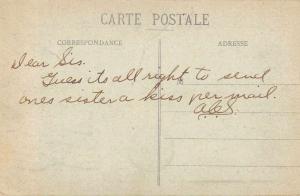 CARTE POSTALE
CORRESPONDANCE
ADRESSE
Dear Sis.
Guess its all right to send
ones sister a kiss per mail.